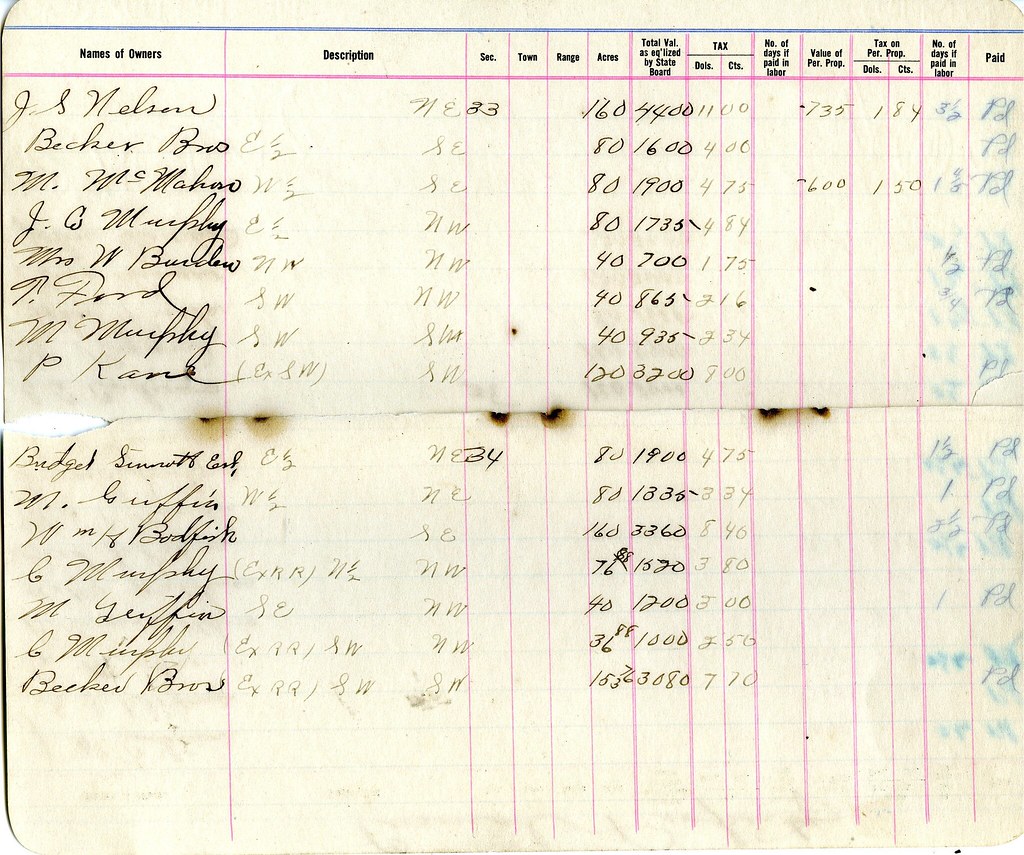 Names of Owners Description Sec. Town Range Acres Total Val. as eq'lized by State Board TAX Dols. Cts. No. of days if paid in labor Value of Per. Prop. Tax on Per. Prop. Dols. Cts. No. of days if paid in labor Paid
J. S Nelson NE 33 160 4400 11 00 735 1 84 3½ Pd
Becker Bros E½ SE 80 1600 4 00 Pd
M. McMahon W½ SE 80 1900 4 75 600 1 50 Pd
J. C Murphy E½ NW 80 1735 4 84
Mrs W Burden NW NW 40 700 1 75 ½ Pd
P. Ford SW NW 40 865 2 16 ¾ Pd
M Murphy SW 40 935 2 34
P Kane (Ex SW) SW 120 3200 8 00 Pd
Bridget Est E½ NE 34 80 1900 4 75 1½ Pd
M. Griffin W½ NE 80 1335 3 34 1 Pd
Wm H Bodfish SE 160 3360 8 40 3½ Pd
C Murphy (Ex RR) N½ NW 76 88 1520 3 80
M Griffin SE NW 40 1200 3 00 1 Pd
C Murphy (Ex RR) SW NW 36 88 1000 2 50
Becker Bros Ex RR) SW SW 153 76 3080 7 70 Pd